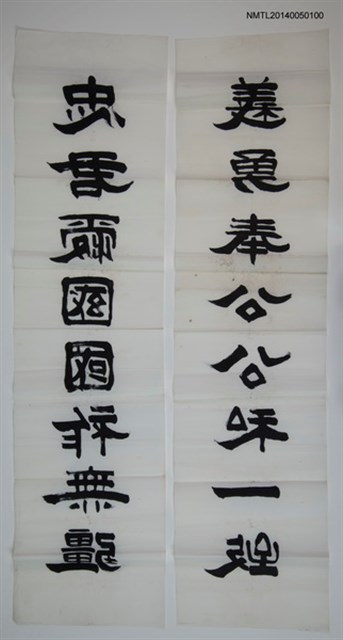 NMTL20140050100
義勇奉公公和一
忠國國祚無疆